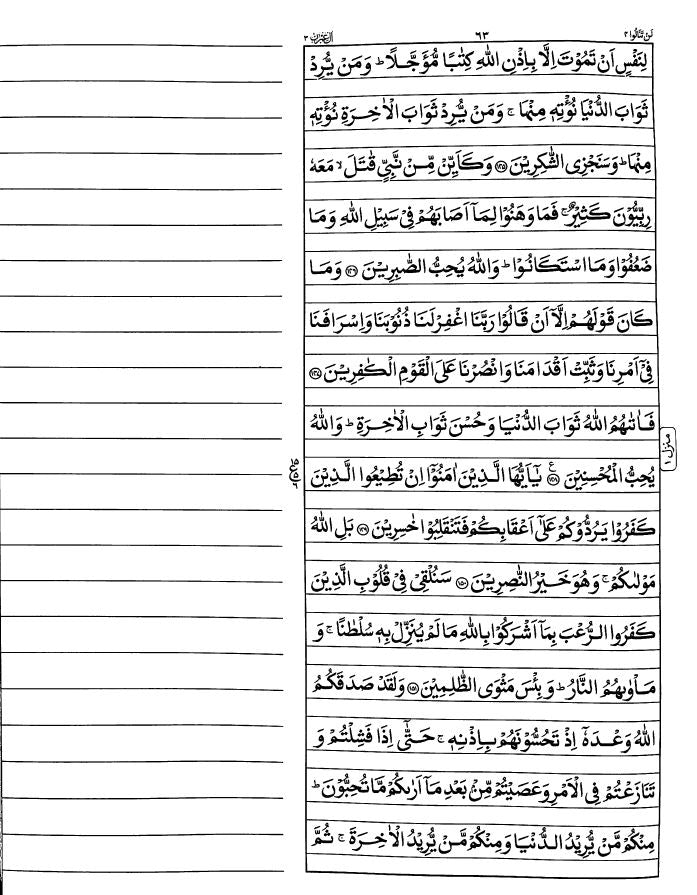 لَنْ تَنَالُوا ٤ ٦٣ اٰلِ عِمْرٰن ٣
لِنَفْسٍ اَنْ تَمُوْتَ اِلَّا بِاِذْنِ اللّٰهِ كِتٰبًا مُّؤَجَّلًا ؕ وَمَنْ يُّرِدْ
ثَوَابَ الدُّنْيَا نُؤْتِهٖ مِنْهَا ۚ وَمَنْ يُّرِدْ ثَوَابَ الْاٰخِرَةِ نُؤْتِهٖ
مِنْهَا ؕ وَسَنَجْزِى الشّٰكِرِيْنَ ﴿۱۴۵﴾ وَكَاَيِّنْ مِّنْ نَّبِيٍّ قٰتَلَ ۙ مَعَهٗ
رِبِّيُّوْنَ كَثِيْرٌ ۚ فَمَا وَهَنُوْا لِمَاۤ اَصَابَهُمْ فِيْ سَبِيْلِ اللّٰهِ وَمَا
ضَعُفُوْا وَمَا اسْتَكَانُوْا ؕ وَاللّٰهُ يُحِبُّ الصّٰبِرِيْنَ ﴿۱۴۶﴾ وَمَا
كَانَ قَوْلَهُمْ اِلَّاۤ اَنْ قَالُوْا رَبَّنَا اغْفِرْ لَنَا ذُنُوْبَنَا وَاِسْرَافَنَا
فِيْۤ اَمْرِنَا وَثَبِّتْ اَقْدَامَنَا وَانْصُرْنَا عَلَى الْقَوْمِ الْكٰفِرِيْنَ ﴿۱۴۷﴾
فَاٰتٰىهُمُ اللّٰهُ ثَوَابَ الدُّنْيَا وَحُسْنَ ثَوَابِ الْاٰخِرَةِ ؕ وَاللّٰهُ
يُحِبُّ الْمُحْسِنِيْنَ ﴿۱۴۸﴾ ع يٰۤاَيُّهَا الَّذِيْنَ اٰمَنُوْۤا اِنْ تُطِيْعُوا الَّذِيْنَ
كَفَرُوْا يَرُدُّوْكُمْ عَلٰۤى اَعْقَابِكُمْ فَتَنْقَلِبُوْا خٰسِرِيْنَ ﴿۱۴۹﴾ بَلِ اللّٰهُ
مَوْلٰىكُمْ ۚ وَهُوَ خَيْرُ النّٰصِرِيْنَ ﴿۱۵۰﴾ سَنُلْقِيْ فِيْ قُلُوْبِ الَّذِيْنَ
كَفَرُوا الرُّعْبَ بِمَاۤ اَشْرَكُوْا بِاللّٰهِ مَا لَمْ يُنَزِّلْ بِهٖ سُلْطٰنًا ۚ وَ
مَاْوٰىهُمُ النَّارُ ؕ وَبِئْسَ مَثْوَى الظّٰلِمِيْنَ ﴿۱۵۱﴾ وَلَقَدْ صَدَقَكُمُ
اللّٰهُ وَعْدَهٗۤ اِذْ تَحُسُّوْنَهُمْ بِاِذْنِهٖ ۚ حَتّٰۤى اِذَا فَشِلْتُمْ وَ
تَنَازَعْتُمْ فِي الْاَمْرِ وَعَصَيْتُمْ مِّنْۢ بَعْدِ مَاۤ اَرٰىكُمْ مَّا تُحِبُّوْنَ ؕ
مِنْكُمْ مَّنْ يُّرِيْدُ الدُّنْيَا وَمِنْكُمْ مَّنْ يُّرِيْدُ الْاٰخِرَةَ ۚ ثُمَّ
منزل ۱